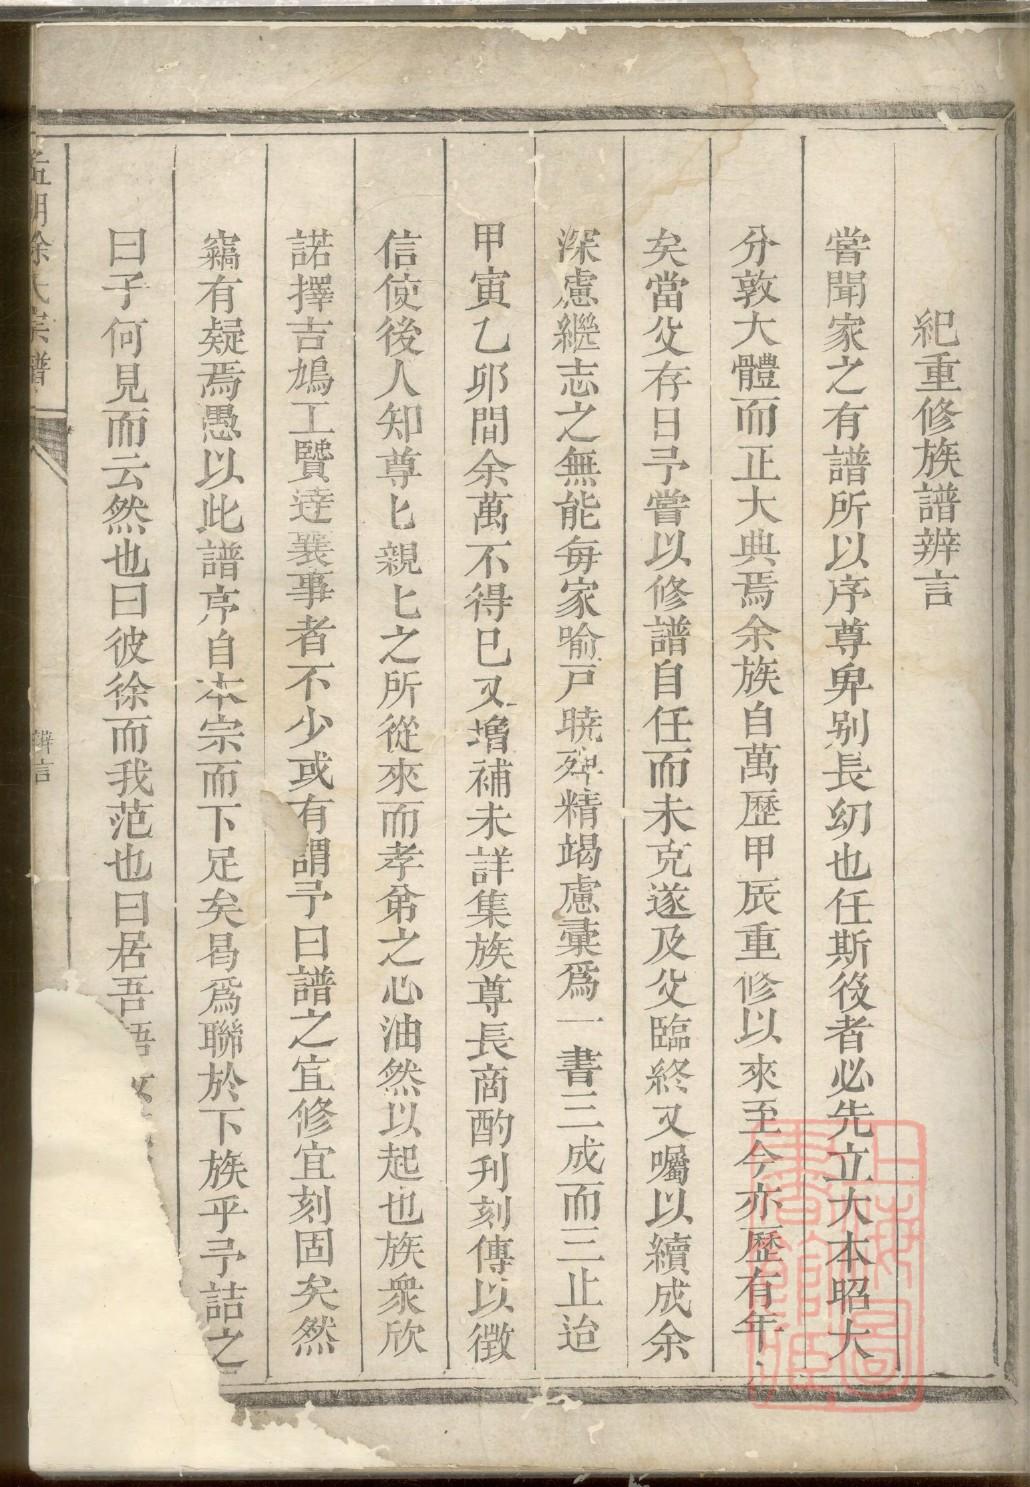 紀重修族譜辨言
嘗聞家之有譜所以序尊卑别長幼也任斯後者必先立大本昭大
分敦大體而正大典焉余族自萬歷甲辰重修以來至今亦歷有年
矣當父存日予嘗以修譜自任而未克遂及父臨終又囑以續成余
深慮繼志之無能每家喻戸曉殫精竭慮彙爲一書三成而三止迨
甲寅乙邜間余萬不得已又增補未詳集族尊長商酌刋刻傳以徵
信使後人知尊匕親匕之所從來而孝弟之心油然以起也族衆欣
諾擇吉鳩工贒達襄事者不少或有謂予曰譜之宜修宜刻固矣然
竊有疑焉愚以此譜序自本宗而下足矣曷爲聯於下族乎予詰之
曰子何見而云然也曰彼徐而我范也曰居吾語
徐氏宗譜
辨言
上海圖書館藏